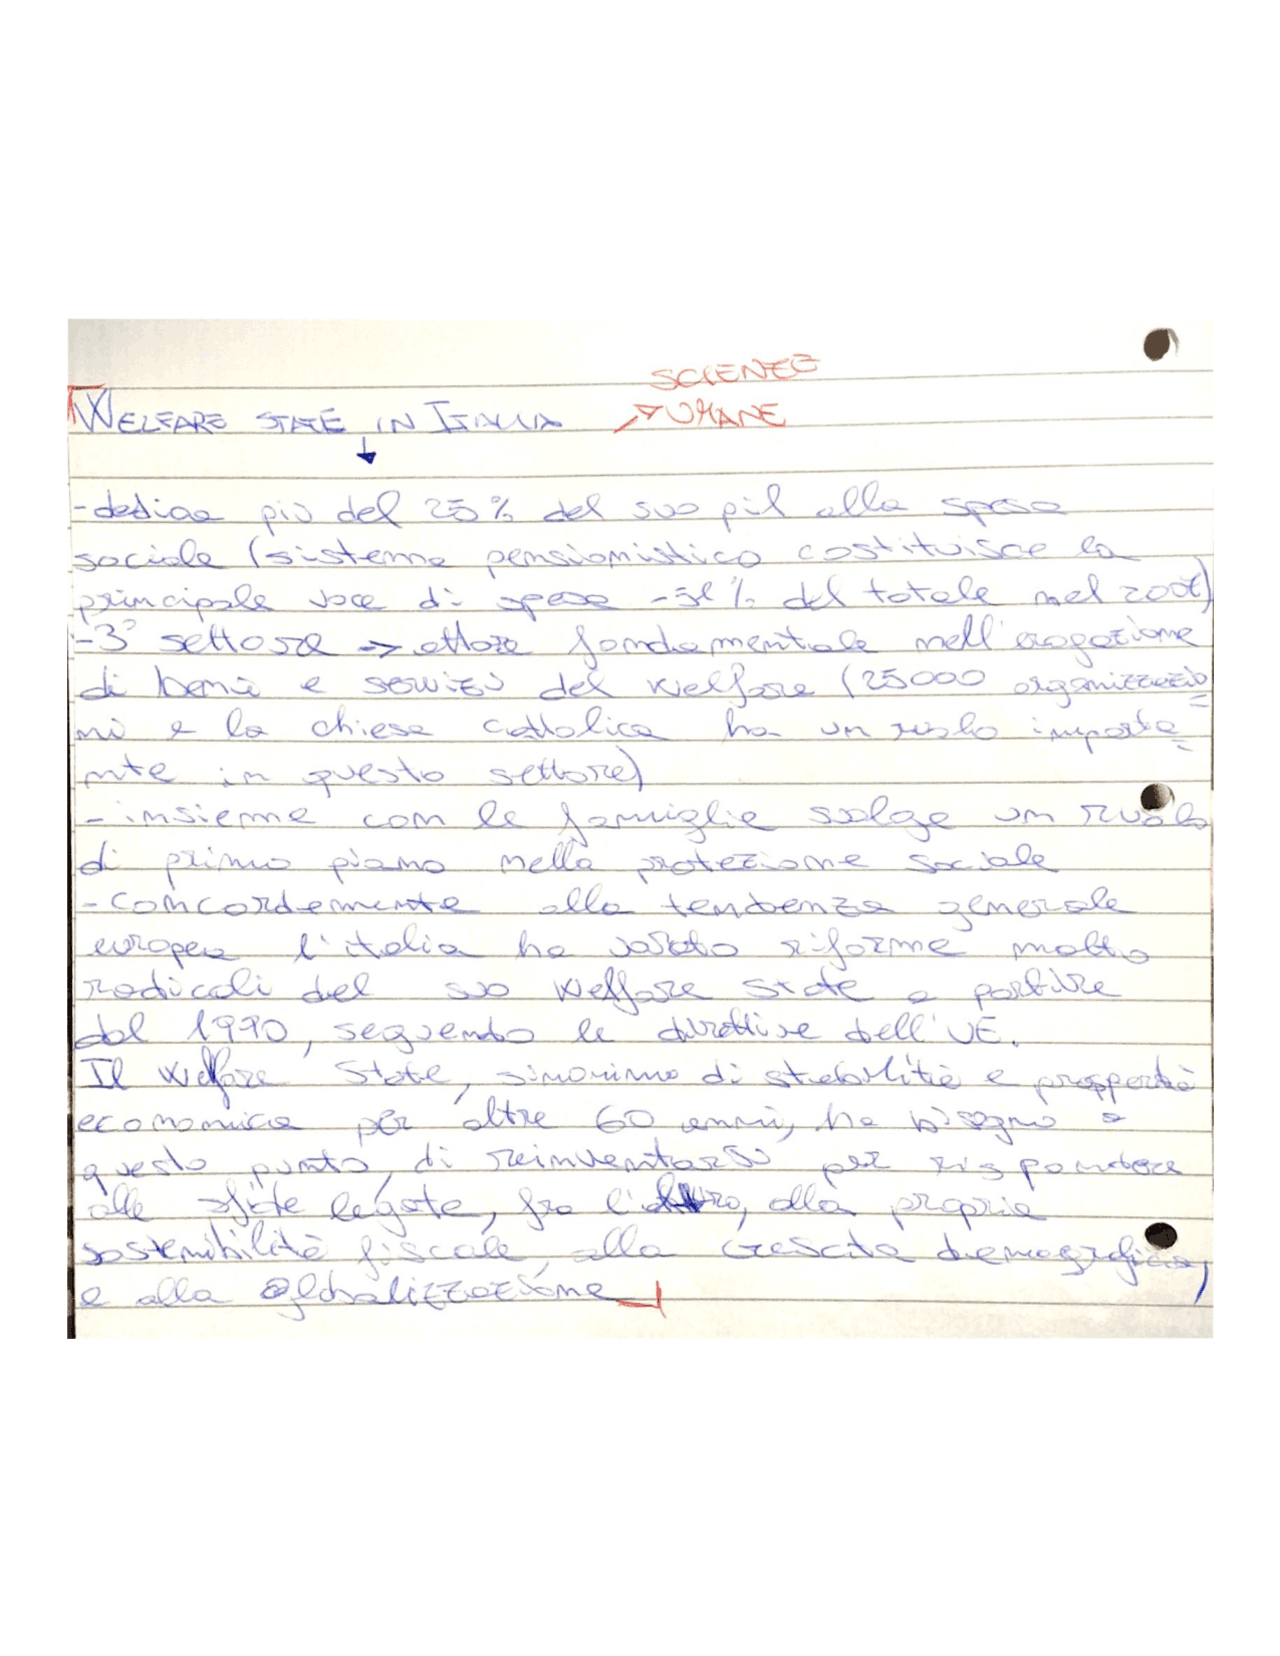 SCIENZE
WELFARE STATE IN ITALIA UMANE
- dedica più del 25% del suo pil alla spesa
sociale (sistema pensionistico costituisce la
principale voce di spesa - % del totale nel
- 3° settore → attore fondamentale nell'erogazione
di beni e servizi del welfare (25000 organizzazio=
ni e la chiesa cattolica ha un ruolo importa=
nte in questo settore)
- insieme con le famiglie svolge un ruolo
di primo piano nella protezione sociale
- concordemente alla tendenza generale
europea l'italia ha varato riforme molto
radicali del suo welfare state a partire
dal 1990, seguendo le direttive dell'UE.
Il welfare state, sinonimo di stabilità e
economica per oltre 60 anni, ha bisogno a
questo punto, di reinventarsi per rispondere
alle sfide legate, fra l'altro, alla propria
sostenibilità fiscale, alla crescita demografica,
e alla globalizzazione